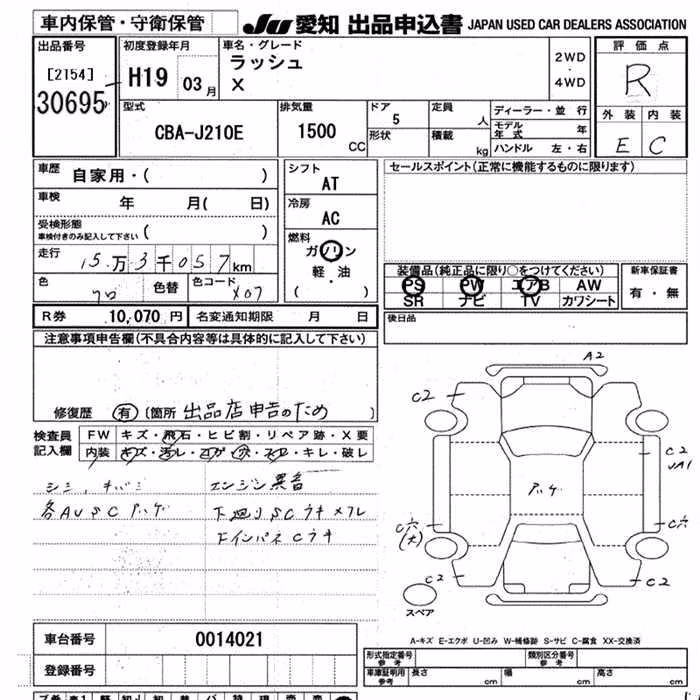 車内保管・守衛保管
JU 愛知 出品申込書 JAPAN USED CAR DEALERS ASSOCIATION
出品番号
[2154]
30695
初度登録年月
H19 03月
車名・グレード
ラッシュ
X
2WD
・
4WD
評価点
R
外装 内装
E C
型式
CBA-J210E
排気量
1500 CC
ドア
5
形状
定員
人
積載
kg
ディーラー・並行
モデル年式
ハンドル 左・右
車歴
自家用・( )
車検
年 月( 日)
受検形態
車検付きのみ記入して下さい ( )
走行
15万3千057km
色
クロ
色替
色コード
X07
シフト
AT
冷房
AC
燃料
ガソリン
軽・油
( )
セールスポイント(正常に機能するものに限ります)
装備品(純正品に限り○をつけてください)
PS PW エアB AW
SR ナビ TV カワシート
新車保証書
有・無
後日品
R券 10,070円 名変通知期限 月 日
注意事項申告欄(不具合内容等は具体的に記入して下さい)
修復歴 有 〔箇所 出品店申告のため 〕
検査員記入欄
FW キズ・飛石・ヒビ割・リペア跡・X要
内装 キズ・汚レ・コゲ・穴・スレ・キレ・破レ
エンジン異音
各AUSCアッゲ
下廻りSCサキメクレ
A2
C2
C2
UA1
アッゲ
C穴
(大)
C穴
C2
C2
スペア
A-キズ E-エクボ U-凹み W-補修跡 S-サビ C-腐食 XX-交換済
車台番号
0014021
登録番号
形式指定番号
参考
類別区分番号
参考
車庫証明用
参考
長さ
cm
幅
cm
高さ
cm